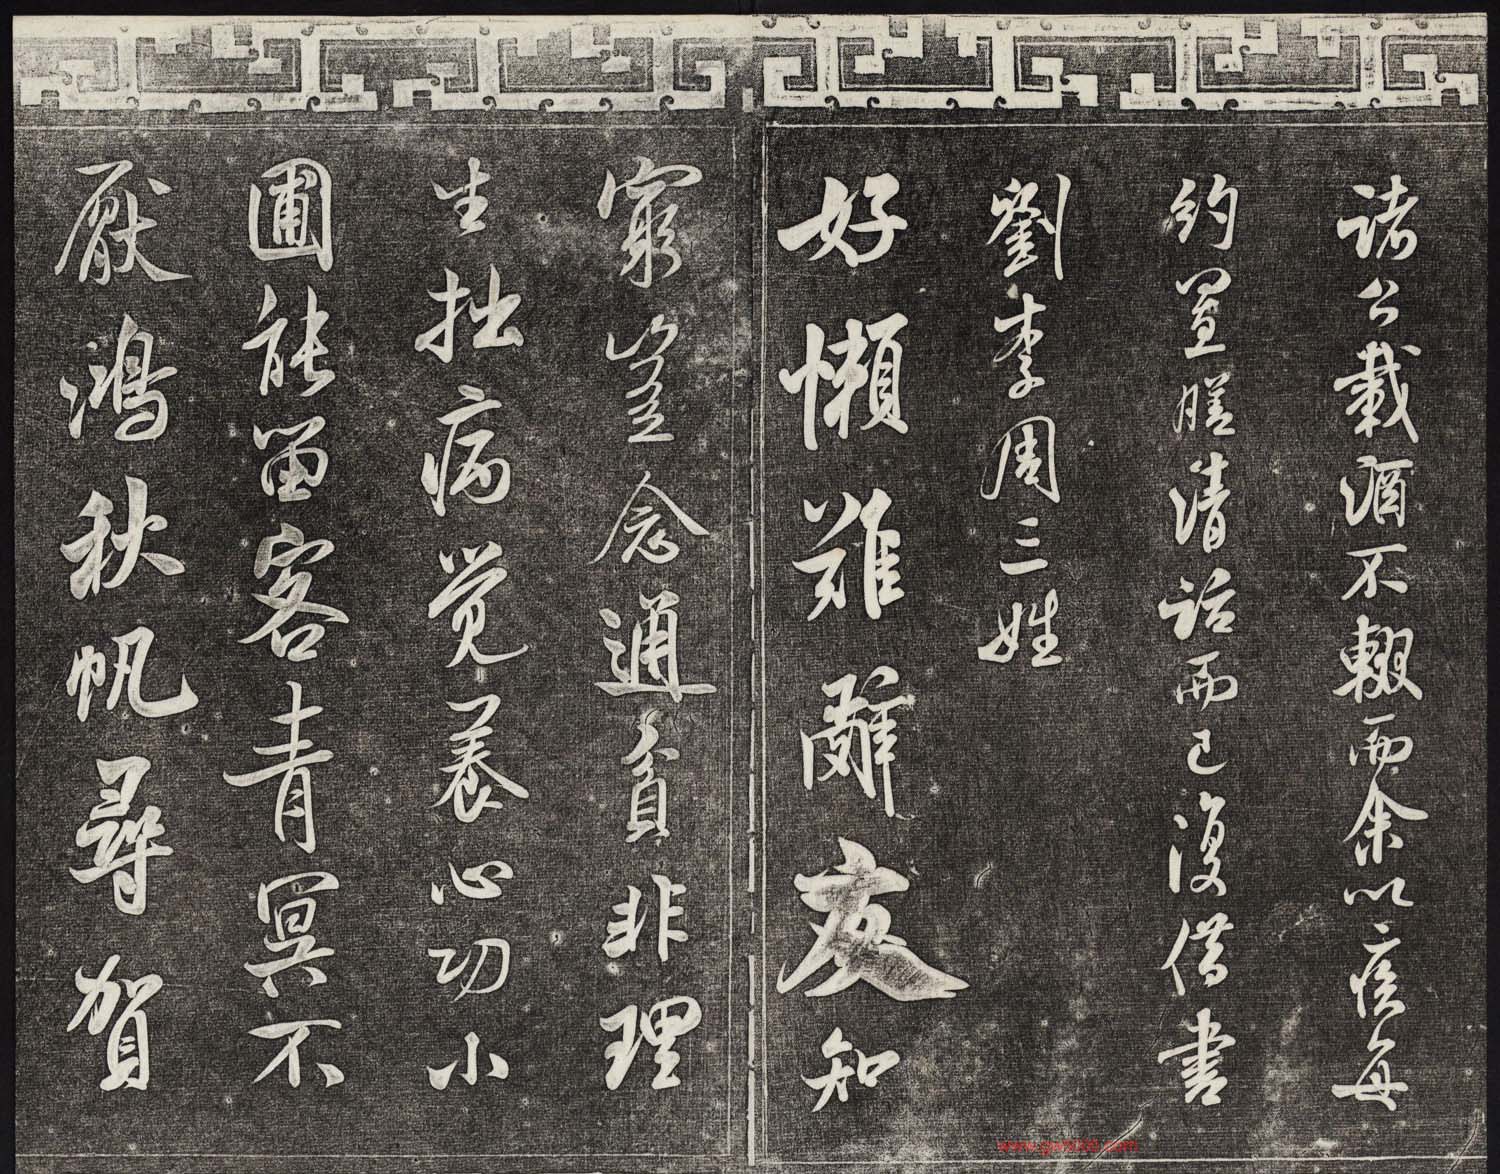 諸公載酒不輟而余以疾每
約置膳清話而已復借書
劉李周三姓
好懶難辭友知
窮豈念通貧非理
生拙病覺養心功小
圃能留客青冥不
厭鴻秋帆尋賀